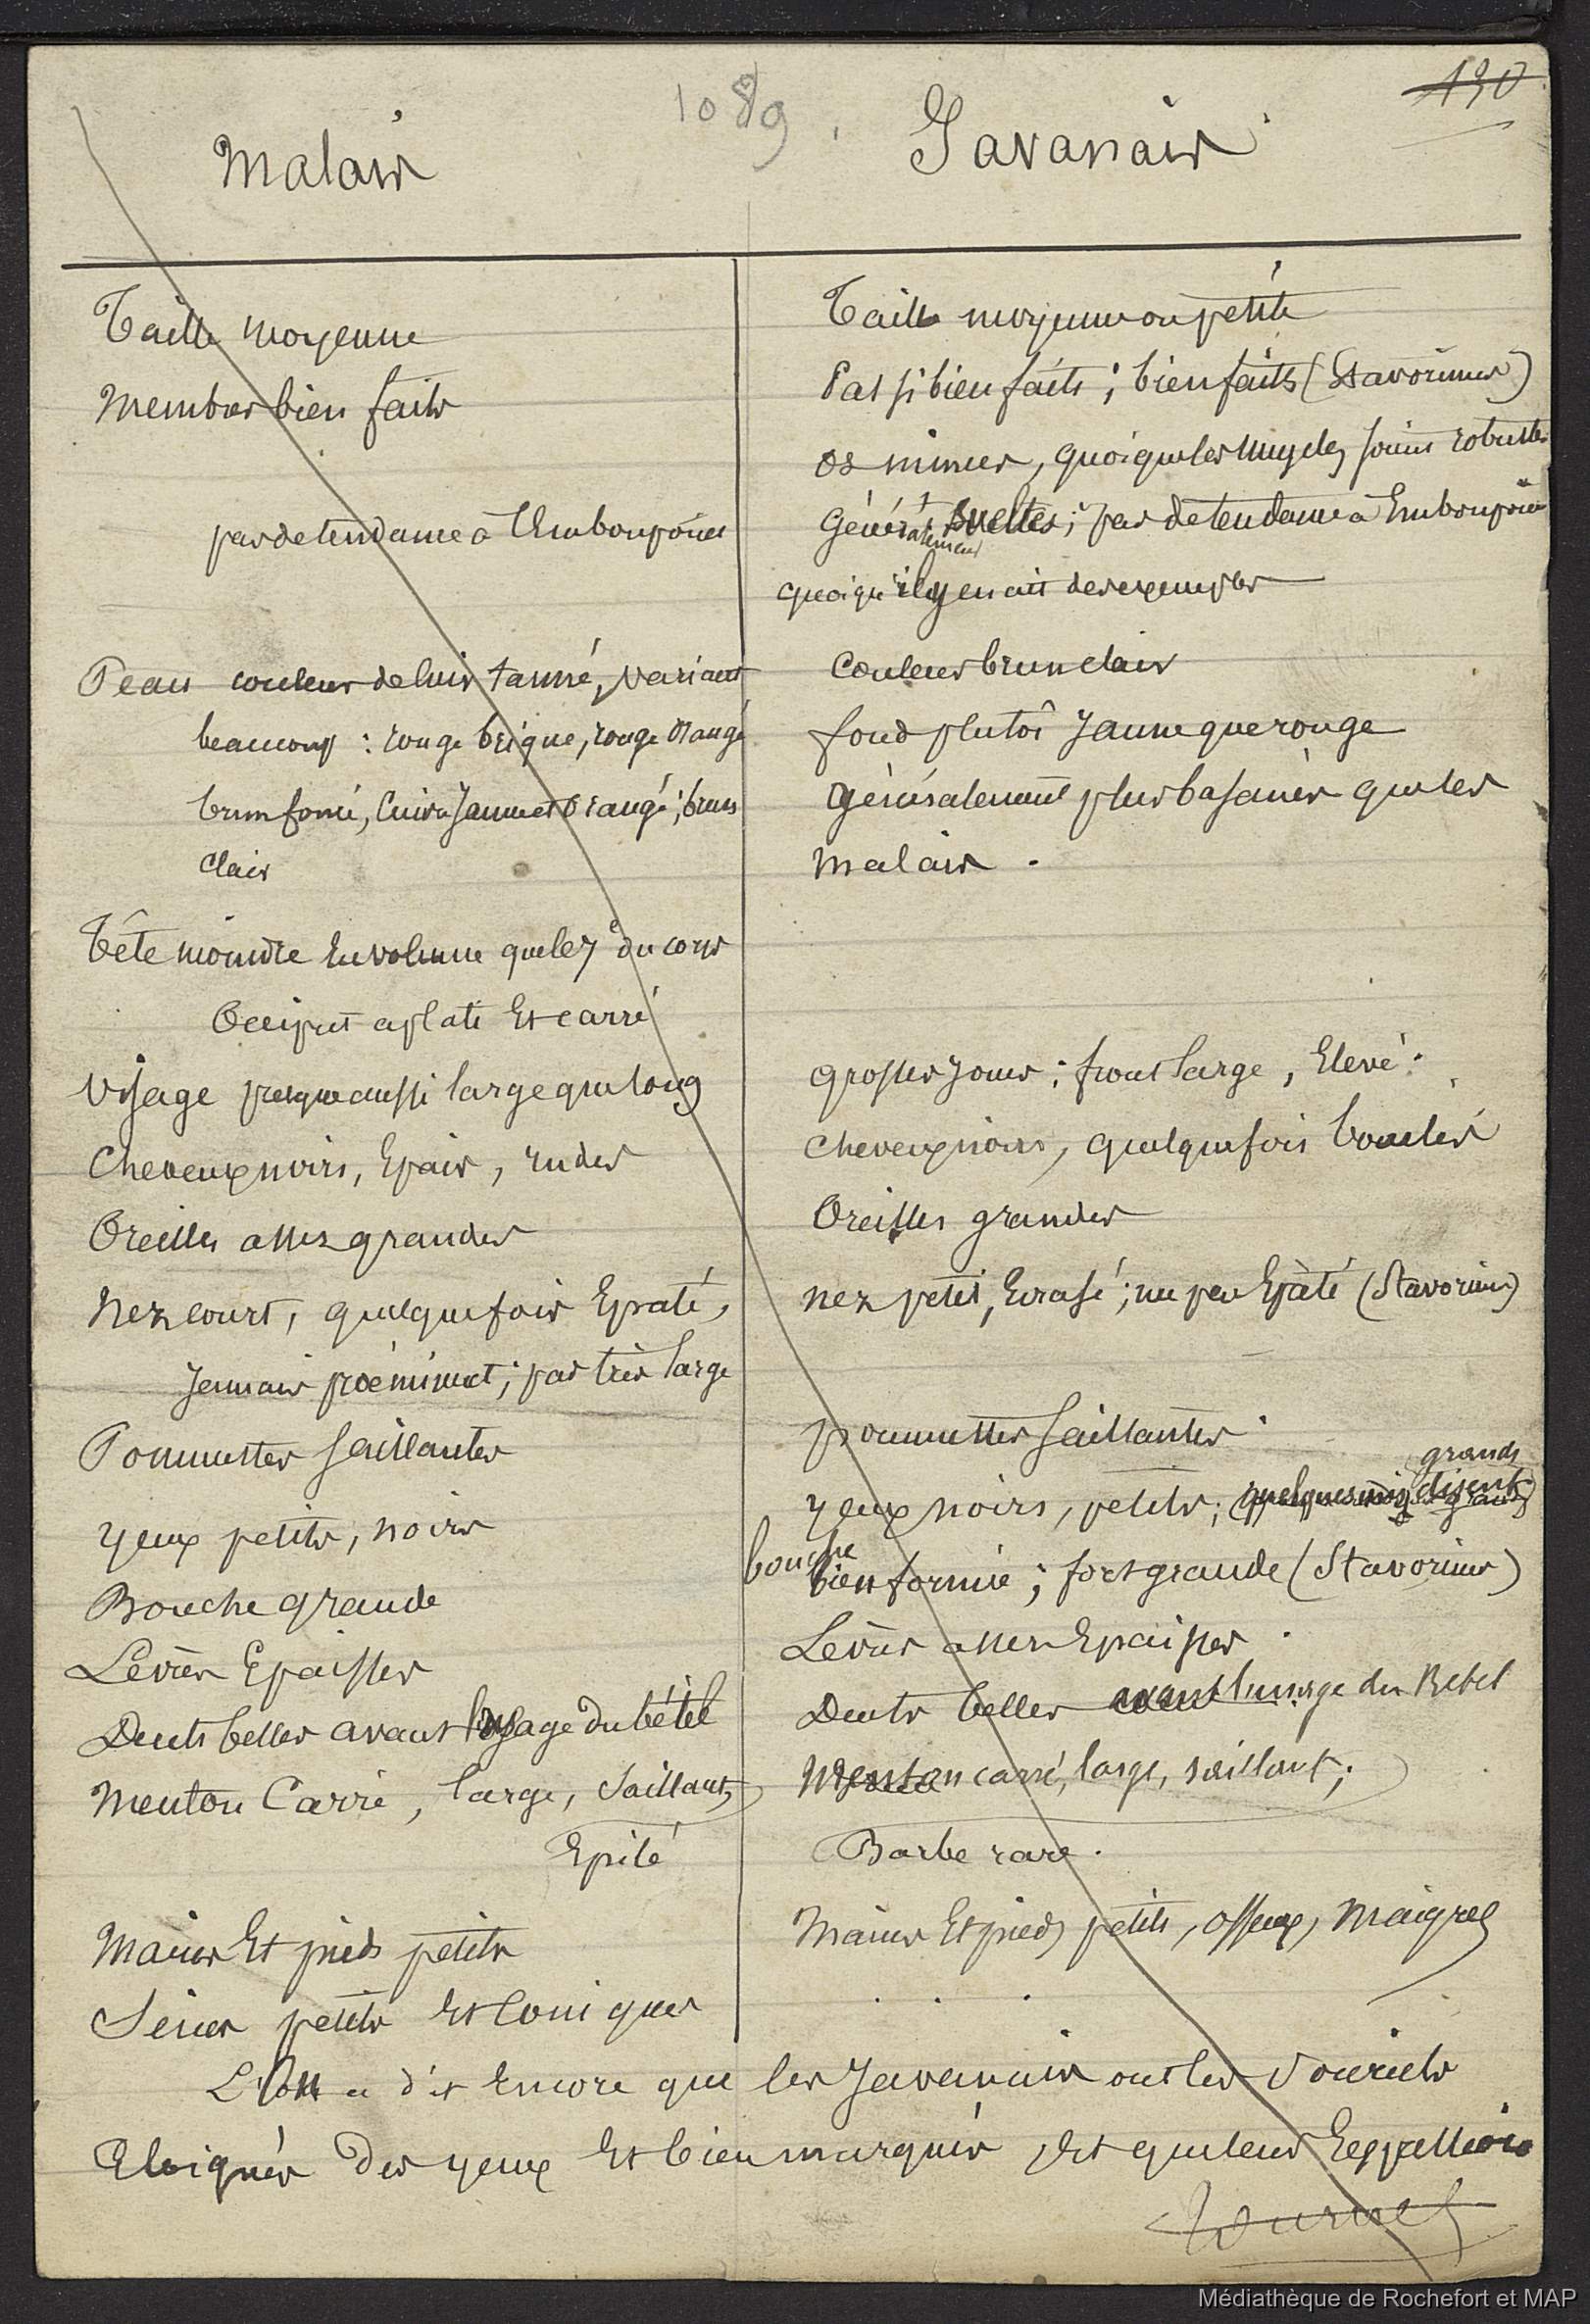 1089
130
Malais
Javanais
Taille moyenne
Membres bien faits
pas de tendance à l'Embonpoint
Peau couleur de cuir tanné, variant
beaucoup : rouge brique, rouge orangé
brun foncé, cuivre jaune et orangé ; brun
clair
Tête moindre En volume que le 7e du corps
Occiput aplati Et carré
Visage presque aussi large que long
Cheveux noirs, Epais, rudes
Oreilles assez grandes
Nez court, quelquefois Epaté,
jamais proéminent ; pas très large
Pommettes saillantes
yeux petits, noirs
Bouche grande
Lèvres Epaisses
Dents belles avant l'usage du bétel
Menton Carré, large, saillant,
Epilé
Mains Et pieds petits
Seins petits Et coniques
Taille moyenne ou petite
Pas si bien faits ; bien faits (Stavorinus)
os minces, quoique les muscles soient robustes
Généralement sveltes ; pas de tendance à Embonpoint
quoiqu'il y en ait des exemples
Couleur brun clair
fond plutôt jaune que rouge
Généralement plus basanés que les
malais .
grosses joues ; front large, Elevé .
cheveux noirs, quelquefois bouclés
Oreilles grandes
nez petit, Ecrasé ; un peu Epâté (Stavorinus)
pommettes saillantes .
grands
yeux noirs, petits ; (quelques uns disent
bouche bien formée ; fort grande (Stavorinus)
Lèvres assez Epaisses .
Dents belles avant l'usage du Bétel
Menton carré, large, saillant ;
Barbe rare .
Mains Et pieds petits, osseux, maigres
. . .
L'on a dit Encore que les Javanais ont les sourcils
Eloignés des yeux Et bien marqués, Et que leur
Médiathèque de Rochefort et MAP